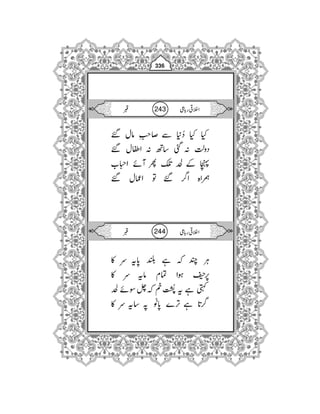 336
اخلاقی رباعی 243 قبر
کیا کیا دُنیا سے صاحبِ مال گئے
دولت نہ گئی ساتھ نہ اطفال گئے
پہنچا کے لحد تلک پھر آئے احباب
ہمراہ اگر گئے تو اعمال گئے
اخلاقی رباعی 244 قبر
ہر چند کہ ہے بلند پایہ سر کا
پر حیف ہوا تمام مایہ سر کا
کہتی ہے یہ پشتِ خم کہ چل سوئے لحد
گرتا ہے ترے پانو پہ سایہ سر کا